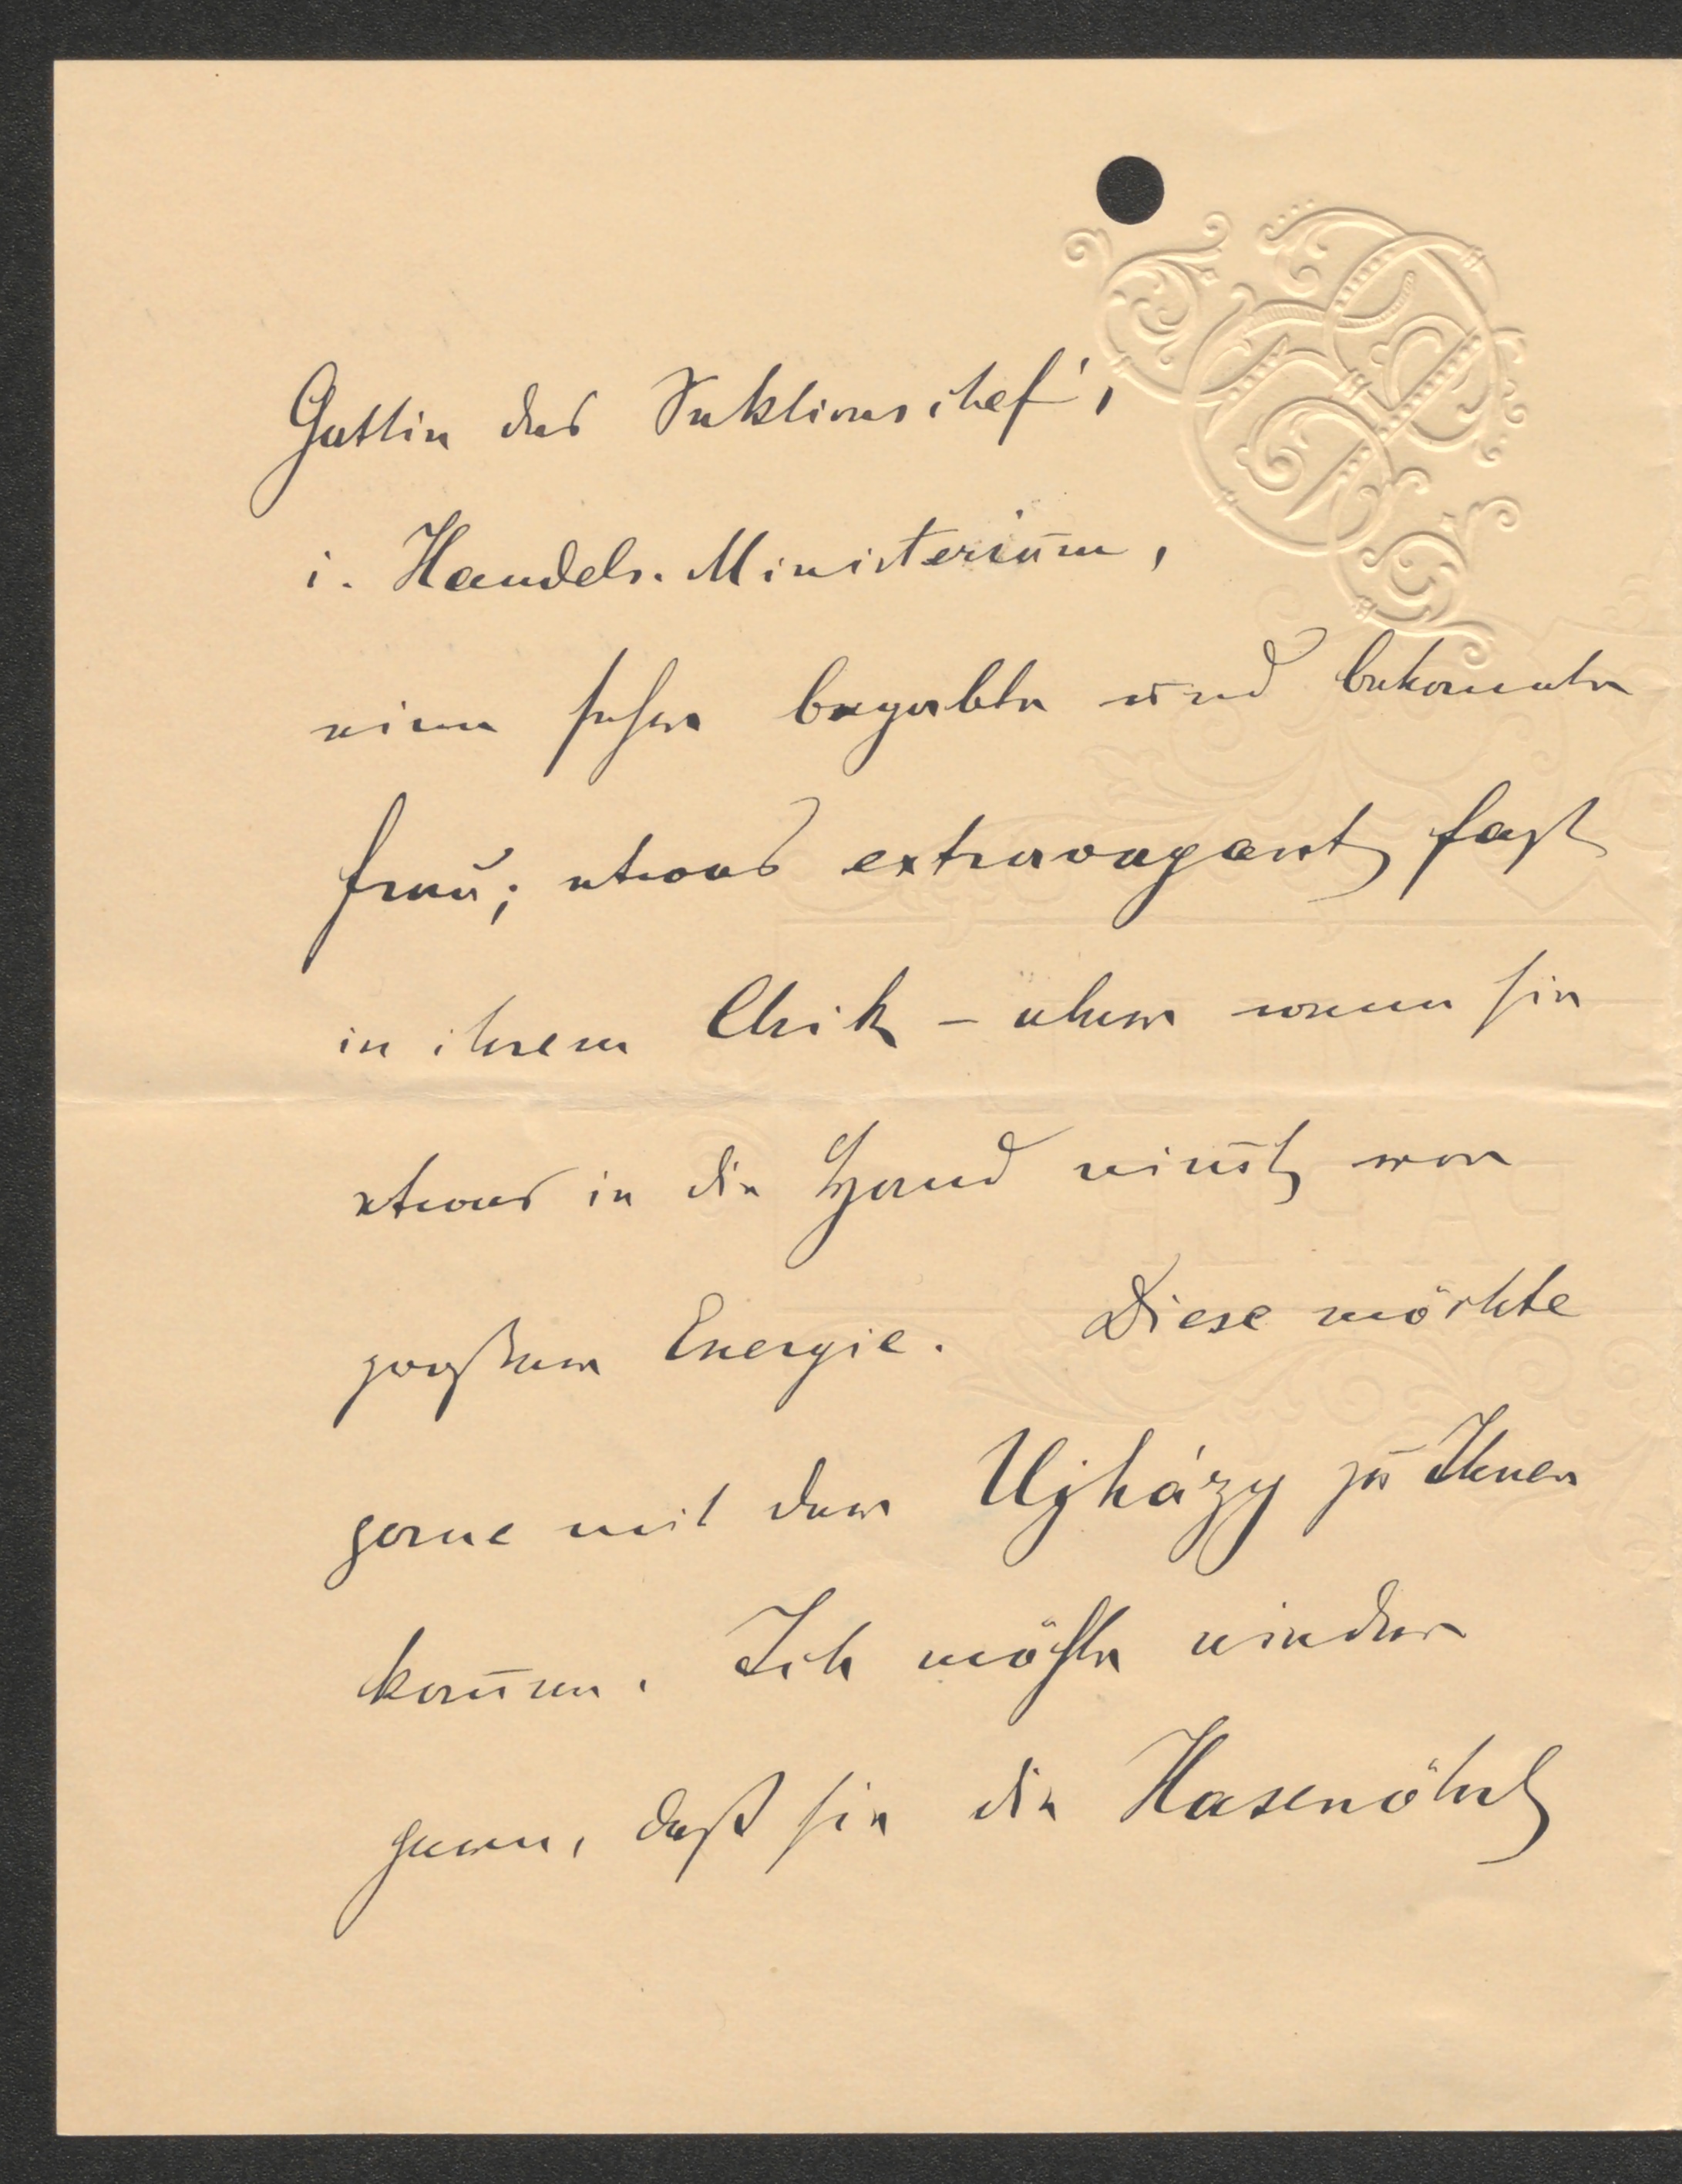 Gattin des Sektionschef's,
i. Handels-Ministerium,
eine sehr begabte und bekannte
Frau; etwas extravagant fast
in ihrem Chik – aber wenn sie
etwas in die Hand nimt von
großer Energie. Diese möchte
gerne mit der Ujházy zu Ihnen
kom̄en. Ich möchte wieder
gerne, daß sie die Hasenöhrl